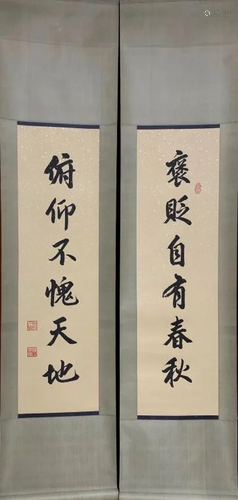 褒贬自有春秋
俯仰不愧天地